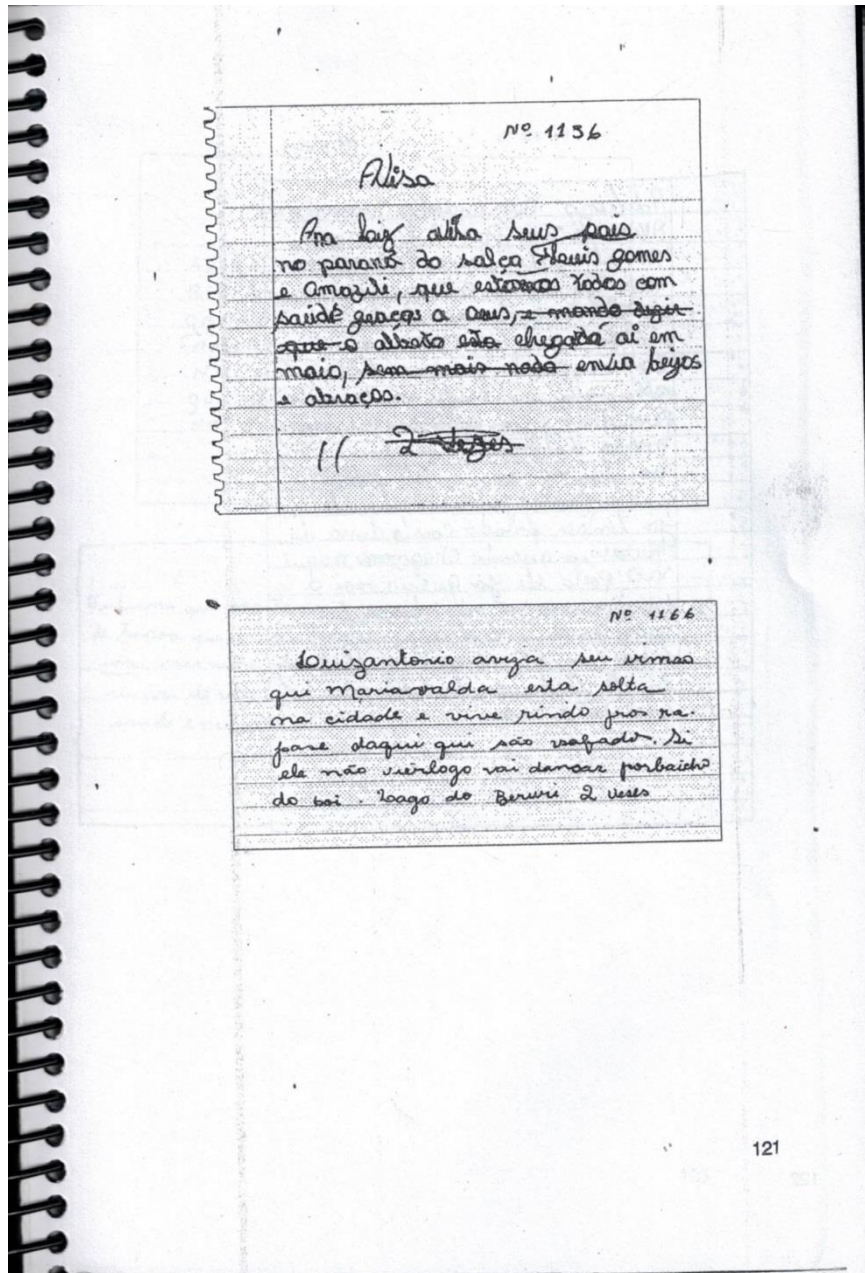 Nº 1136
Aviso
Ana laiz avisa seus pais
no paraná do salça gomes
e Amazili, que estamos todos com
saúde graças a Deus, e manda dizir
que o alberto esta chegada ai em
maio, sem mais nada envia beijos
e abraços.
2 vezes
Nº 1166
Luizantonio aviza seu irmao
qui Mariavalda esta solta
na cidade e vive rindo pros ra-
pase daqui qui são safado. Si
ele não vier logo vai dansar porbaicho
do boi. Lago do Beruri 2 veses
121